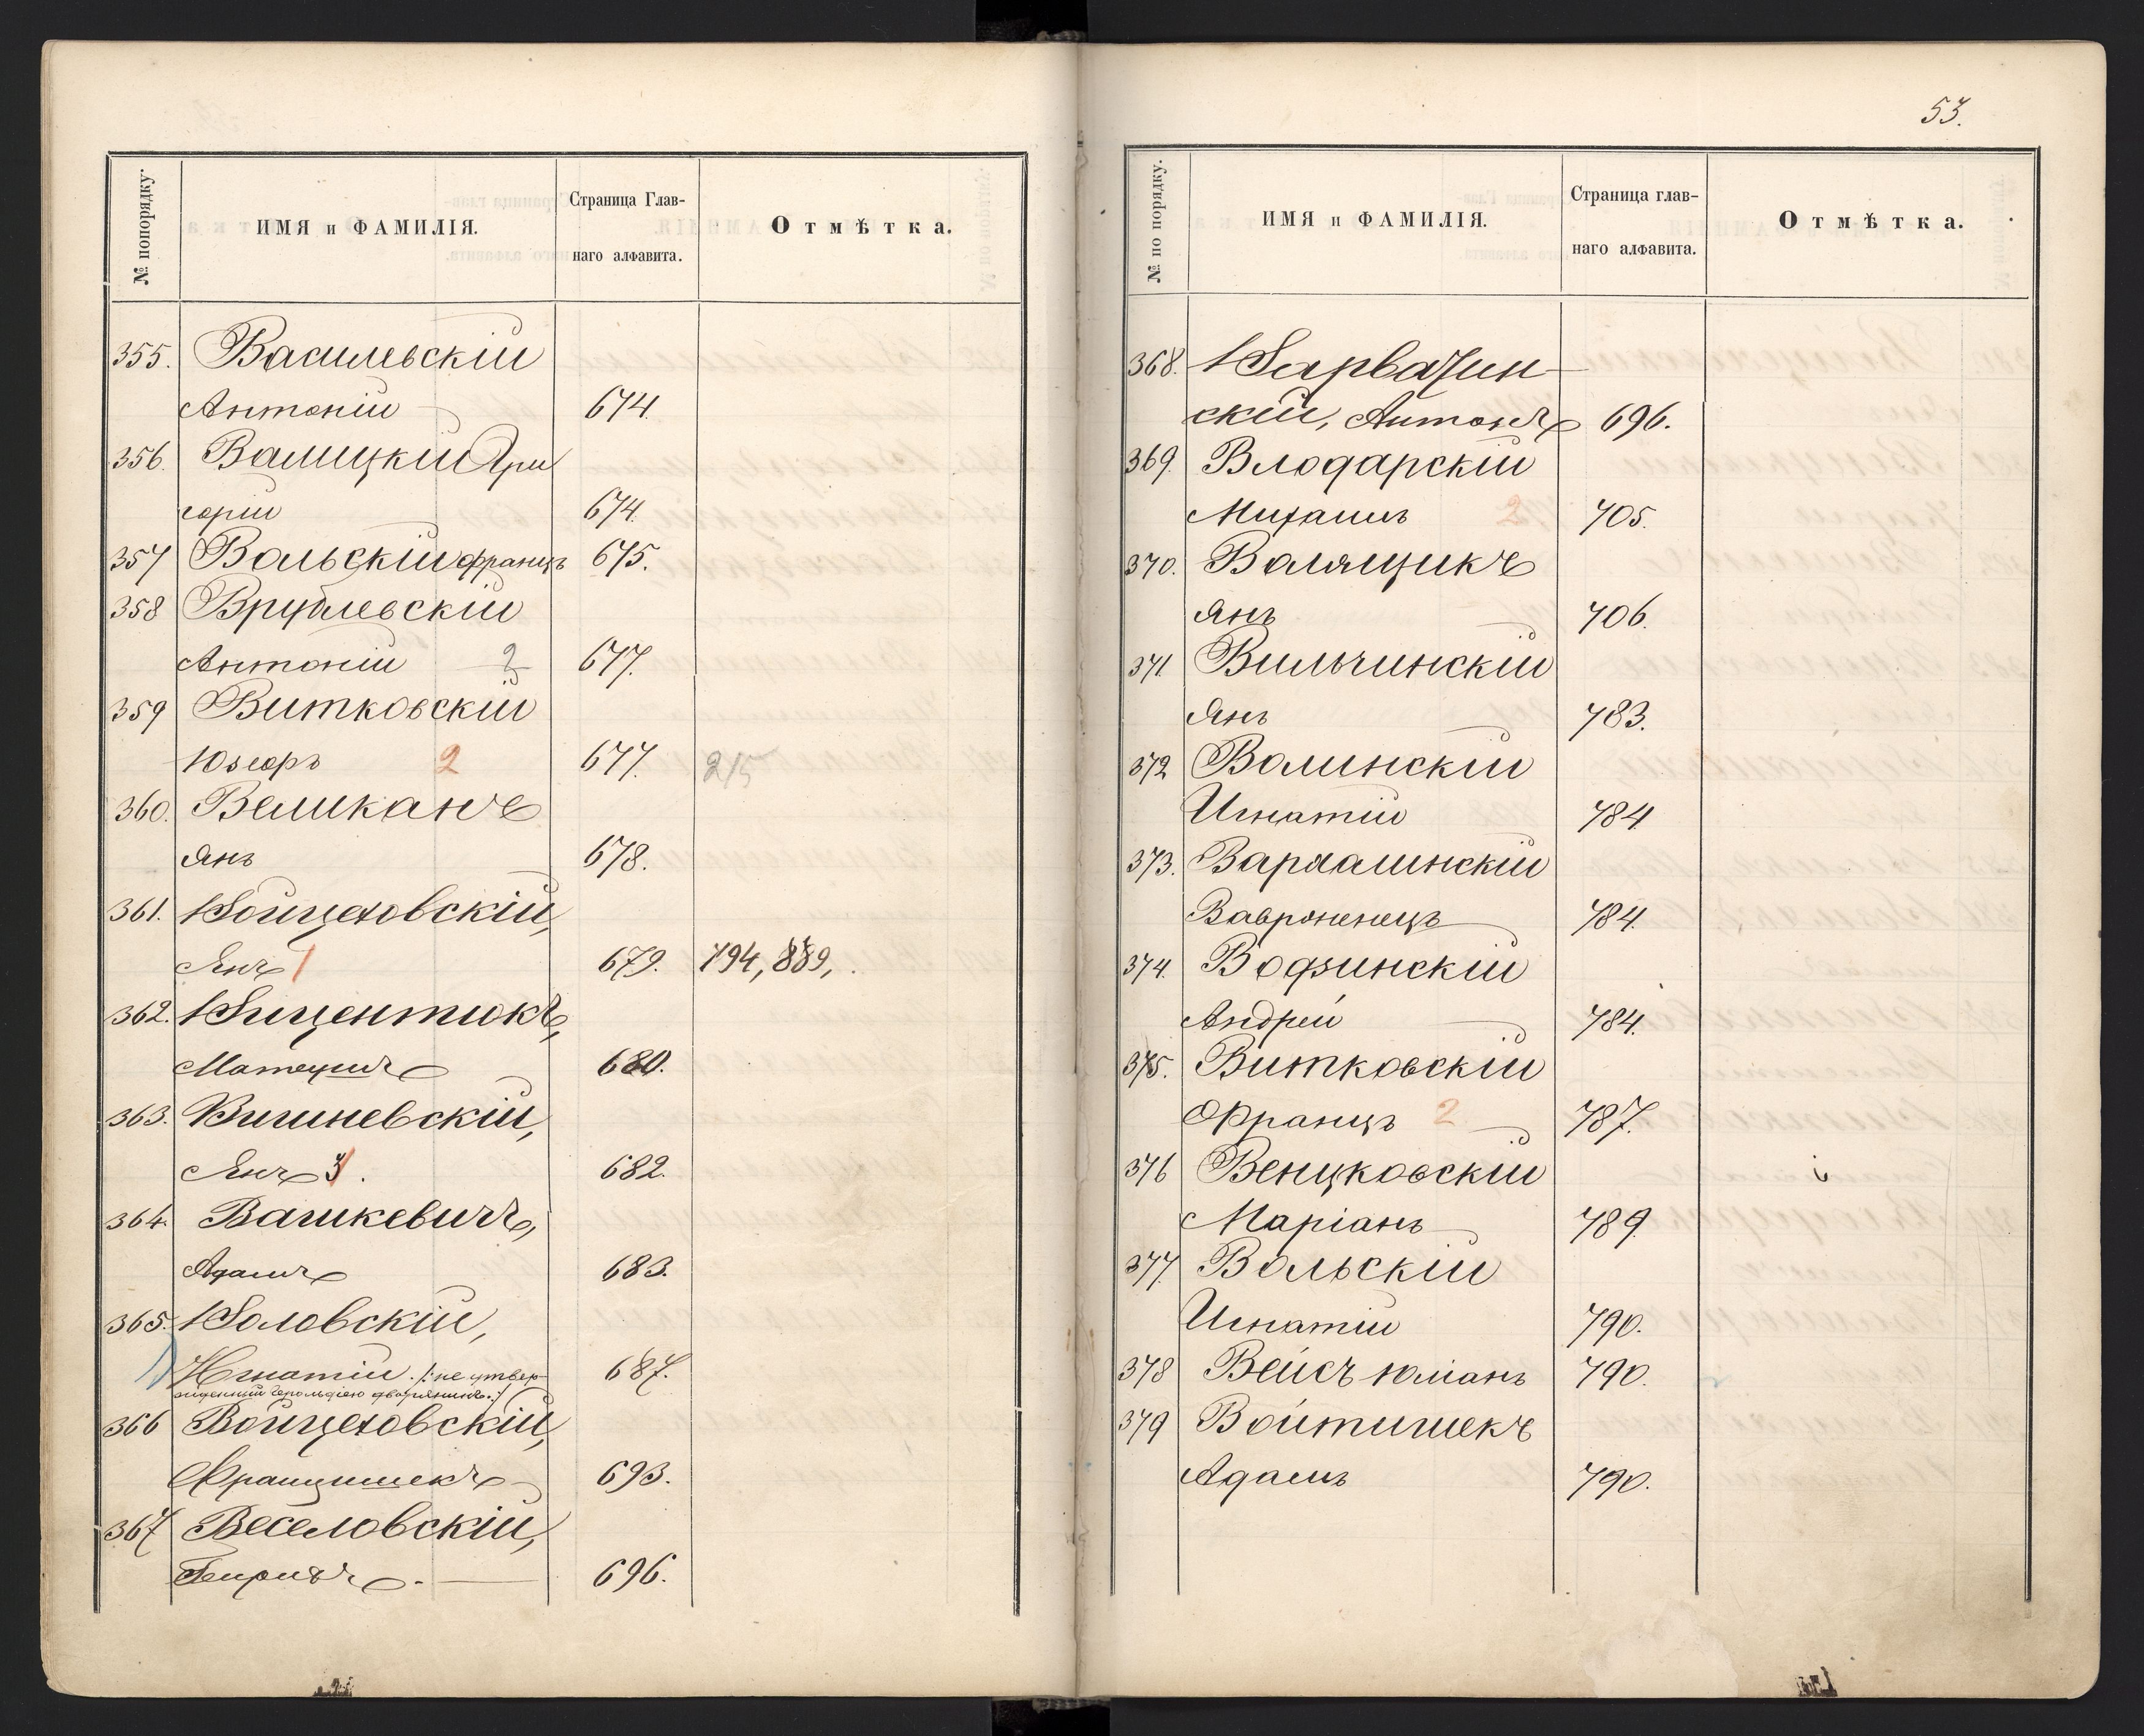 № попорядку.
ИМЯ и ФАМИЛІЯ.
Страница Глав-
наго алфавита.
Отмѣтка.
355. Василевскій
Антоній 674.
356. Валицкій Гри
горій 674.
357 Вольскій Францъ 675.
358 Врублевскій
Антоній 2 677.
359 Витковскій
Юзефъ 2 677. 215
360. Великанъ
Янъ 678.
361. Войцеховскій,
Янъ 1 679. 794, 889,
362. Вицентюкъ,
Матеушъ 680.
363. Вишневскій,
Янъ 3. 682.
364. Вашкевичъ,
Адамъ 683.
365. Воловскій,
Игнатій. /: не утвер-
жденный герольдіею дворянинъ. :/ 687.
366 Войцеховскій,
Францишекъ 693.
367 Веселовскій,
Генрихъ. 696.
53.
№ по порядку.
ИМЯ и ФАМИЛІЯ.
Страница глав-
наго алфавита.
Отмѣтка.
368. Варвазин-
скій, Антонъ 696.
369. Влодарскій
Михаилъ 2 705.
370. Валящикъ
Янъ 706.
371. Вильчинскій
Янъ 783.
372 Волинскій
Игнатій 784
373. Вархалинскій
Вавро 784.
374. Водзинскій
Андрей 784.
375. Витковскій
Францъ 2 787.
376 Венцковскій
Маріанъ 789.
377. Вольскій
Игнатій 790.
378 Вейсъ Юліанъ 790.
379 Войтишекъ
Адамъ 790.